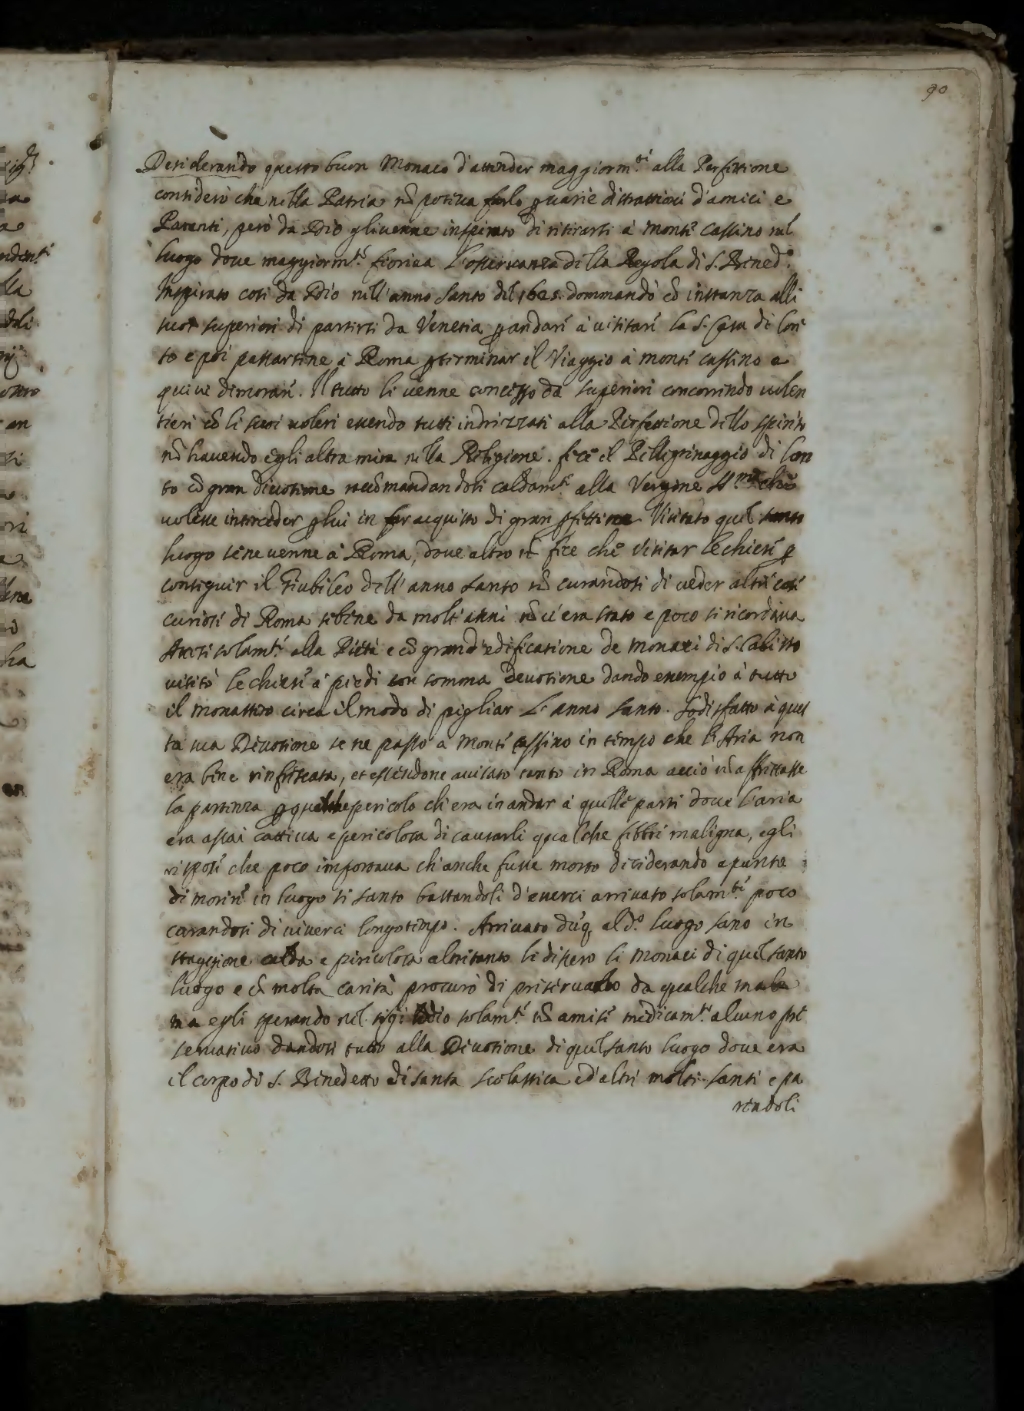 90
Desiderando questo buon Monaco d'attender maggiorm.te alla Perfettione
considerò che nella Patria nõ poteua farlo ꝑ uarie distrattioni d'amici e
Parenti, però da Dio gli uenne inspirato di ritirarsi à Monte Cassino nel
luogo doue maggiorm.te fioriua l'osseruanza della Regola di S. Bened.o
Inspirato così da Dio nell'anno santo del 1625. dommandò cõ instanza alli
suoi superiori di partirsi da Venetia ꝑ andare à uisitare la S. Casa di Lore
to e poi passarsene à Roma ꝑ terminar il Viaggio à monte cassino e
quiui dimorare. Il tutto li uenne concesso da superiori concorrendo uolen
tieri cõ li suoi uoleri essendo tutti indrizzati alla Perfettione dello spirito
nõ hauendo egli altra mira nella Religione. fece el Pellegrinaggio di Lore
to cõ gran diuotione raccõmandandosi caldam.te alla Vergine SS.ma che
uolesse interceder ꝑ lui in far acquisto di gran ꝑfettione Visitato quel santo
luogo se ne uenne à Roma, doue altro nõ fece che visitar le chiese ꝑ
conseguir il Giubileo dell'anno santo nõ curandosi di ueder altre cose
curiose di Roma sebene da molt'anni nõ ui era stato e poco si ricordaua
Attese solam.te alla Pietà e cõ grand'edificatione de monaci di S. Calisto
uisitò le chiese à piedi con somma deuotione dando essempio à tutto
il monastero circa il modo di pigliar l'anno santo. Sodisfatto à ques
ta sua Diuotione se ne passò à Monte cassino in tempo che l'Aria non
era bene rinfrescata, et essendone auisato tanto in Roma acciò nõ affrettasse
la partenza ꝑ qualche pericolo ch'era in andar à quelle parti doue l'aria
era assai cattiua e pericolosa di causarli qualche febbre maligna, egli
rispose che poco importaua ch'anche fusse morto desiderando apunto
di morire in luogo sì santo bastandoli d'esserci arriuato solam.te poco
curandosi di uiuerci longo tempo. Arriuato dũq. al d.o luogo sano in
staggione calda e pericolosa altritanto li dissero li monaci di quel santo
luogo e cõ molta carità procurò di preseruarlo da qualche male
ma egli sperando nel sig. Iddio solam.te nõ amise medicam.to alcuno pre
seruatiuo dandosi tutto alla Diuotione di quel santo luogo doue era
il corpo di S. Benedetto di santa scolastica ed'altri molti santi e pa
rendoli